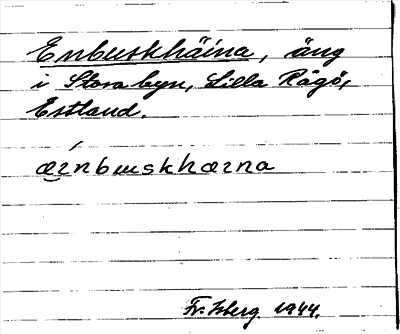 Enbuskhäina, äng
i Stora byn, Lilla Rågö,
Estland.
æɪnbuskhæɪna
Fr. Isberg 1944.